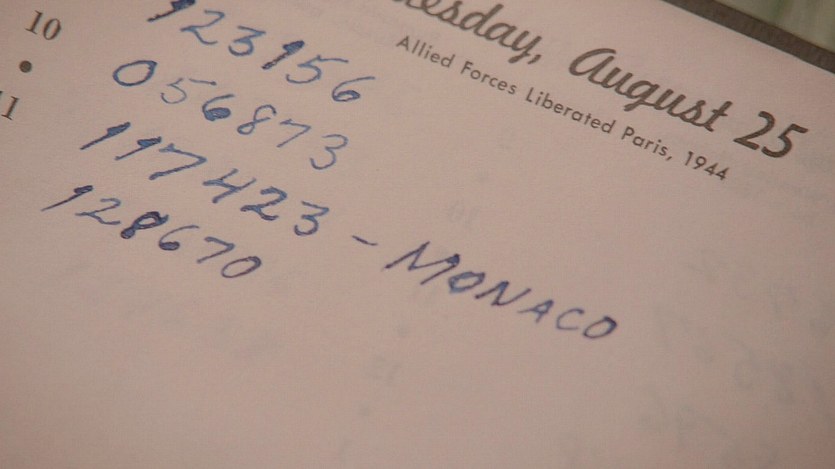 esday, August 25
Allied Forces Liberated Paris, 1944
10
11
123156
056873
117423 - MONACO
128670